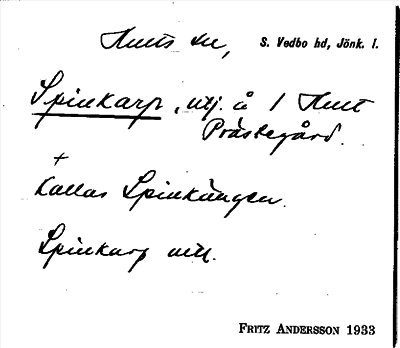 Hults sn, S. Vedbo hd, Jönk. l.
Spinkarp, utj. å 1 Hult
Prästegård.
+
Kallas Spinkängen.
Spinkarp utl.
FRITZ ANDERSSON 1933